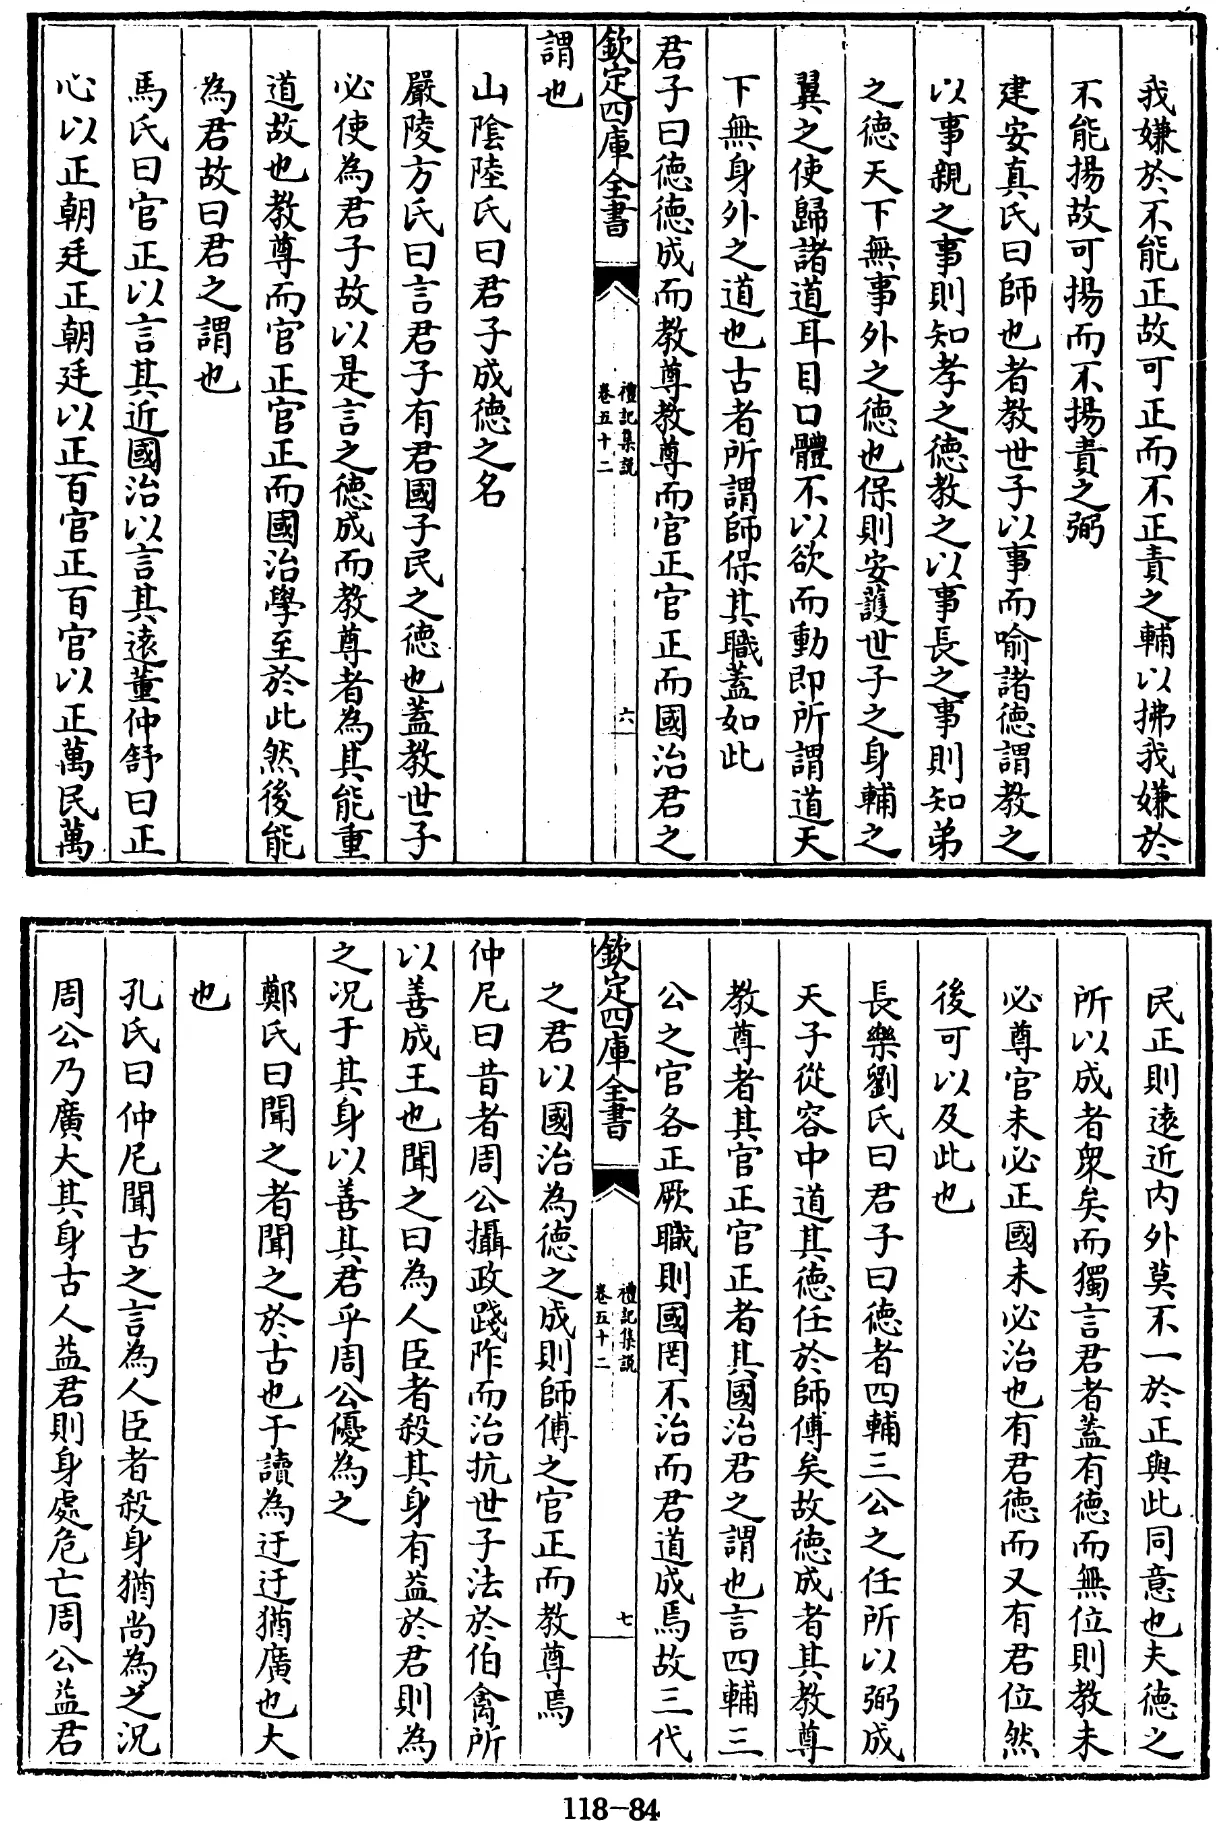 我嫌於不能正故可正而不正責之輔以拂我嫌於
不能揚故可揚而不揚責之弼
建安真氏曰師也者教世子以事而喻諸德謂教之
以事親之事則知孝之德教之以事長之事則知弟
之德天下無事外之德也保則安護世子之身輔之
翼之使歸諸道耳目口體不以欲而動即所謂道天
下無身外之道也古者所謂師保其職蓋如此
君子曰德德成而教尊教尊而官正官正而國治君之
欽定四庫全書
禮記集說
卷五十二
六
謂也
山陰陸氏曰君子成德之名
嚴陵方氏曰言君子有君國子民之德也蓋教世子
必使為君子故以是言之德成而教尊者為其能重
道故也教尊而官正官正而國治學至於此然後能
為君故曰君之謂也
馬氏曰官正以言其近國治以言其遠董仲舒曰正
心以正朝廷正朝廷以正百官正百官以正萬民萬
民正則遠近內外莫不一於正與此同意也夫德之
所以成者衆矣而獨言君者蓋有德而無位則教未
必尊官未必正國未必治也有君德而又有君位然
後可以及此也
長樂劉氏曰君子曰德者四輔三公之任所以弼成
天子從容中道其德任於師傅矣故德成者其教尊
教尊者其官正官正者其國治君之謂也言四輔三
公之官各正厥職則國罔不治而君道成焉故三代
欽定四庫全書
禮記集說
卷五十二
七
之君以國治為德之成則師傅之官正而教尊焉
仲尼曰昔者周公攝政踐阼而治抗世子法於伯禽所
以善成王也聞之曰為人臣者殺其身有益於君則為
之况于其身以善其君乎周公優為之
鄭氏曰聞之者聞之於古也于讀為迂迂猶廣也大
也
孔氏曰仲尼聞古之言為人臣者殺身猶尚為之况
周公乃廣大其身古人益君則身處危亡周公益君
118-84